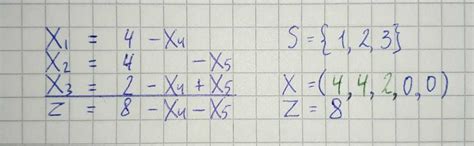 X₁ = 4 - X₄ S = {1, 2, 3}
X₂ = 4 - X₅
X₃ = 2 - X₄ + X₅ X = (4, 4, 2, 0, 0)
Z = 8 - X₄ - X₅ Z = 8